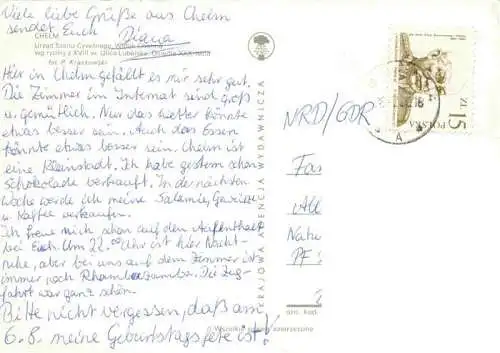 Viele liebe Grüße aus Chelm
sendet Euch Diana
CHEŁM
Urząd Stanu Cywilnego
wg ryciny z XVIII w. Ulica Lubelska. Osiedle XXX-lecia
fot. P. Krassowski
Hier in Chelm gefällt es mir sehr gut.
Die Zimmer im Internat sind groß
u. gemütlich. Nur das Wetter könnte
etwas besser sein. Auch das Essen
könnte etwas besser sein. Chelm ist
eine Kleinstadt. Ich habe gestern schon
Schokolade verkauft. In der nächsten
Woche werde ich meine Salamie, Gewürze
u. Kaffee verkaufen.
Ich freue mich schon auf den Aufenthalt
bei Euch. Um 22.00 Uhr ist hier Nacht-
ruhe, aber bei uns auf dem Zimmer ist
immer noch Rhambazamba. Die Zug-
fahrt war ganz schön.
Bitte nicht vergessen, daß am
6.8. meine Geburtstagsfete ist!
KRAJOWA AGENCJA WYDAWNICZA
POLSKA
ZŁ 15
NRD/GDR
Fa
Natu
PF
kod.
Wszelkie prawa zastrzeżone